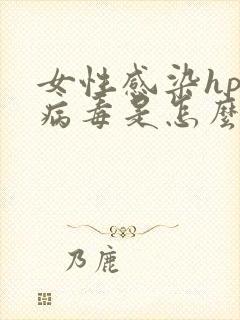 女性感染hp
病毒是怎麼
乃鹿